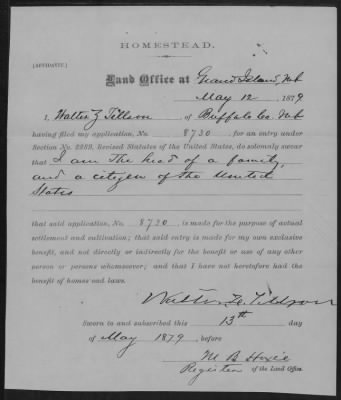 HOMESTEAD.
(AFFIDAVIT.)
Land Office at Grand Island, Neb
May 12, 1879
I, Walter Z Tillson of Buffalo Co. Neb
having filed my application, No. 8730, for an entry under
Section No. 2289, Revised Statutes of the United States, do solemnly swear
that I am the head of a family,
and a citizen of the United
States
that said application, No. 8730, is made for the purpose of actual
settlement and cultivation; that said entry is made for my own exclusive
benefit, and not directly or indirectly for the benefit or use of any other
person or persons whomsoever; and that I have not heretofore had the
benefit of homestead laws.
Walter Z. Tillson
Sworn to and subscribed this 13th day
of May 1879, before
M B Hoxie
Register of the Land Office.